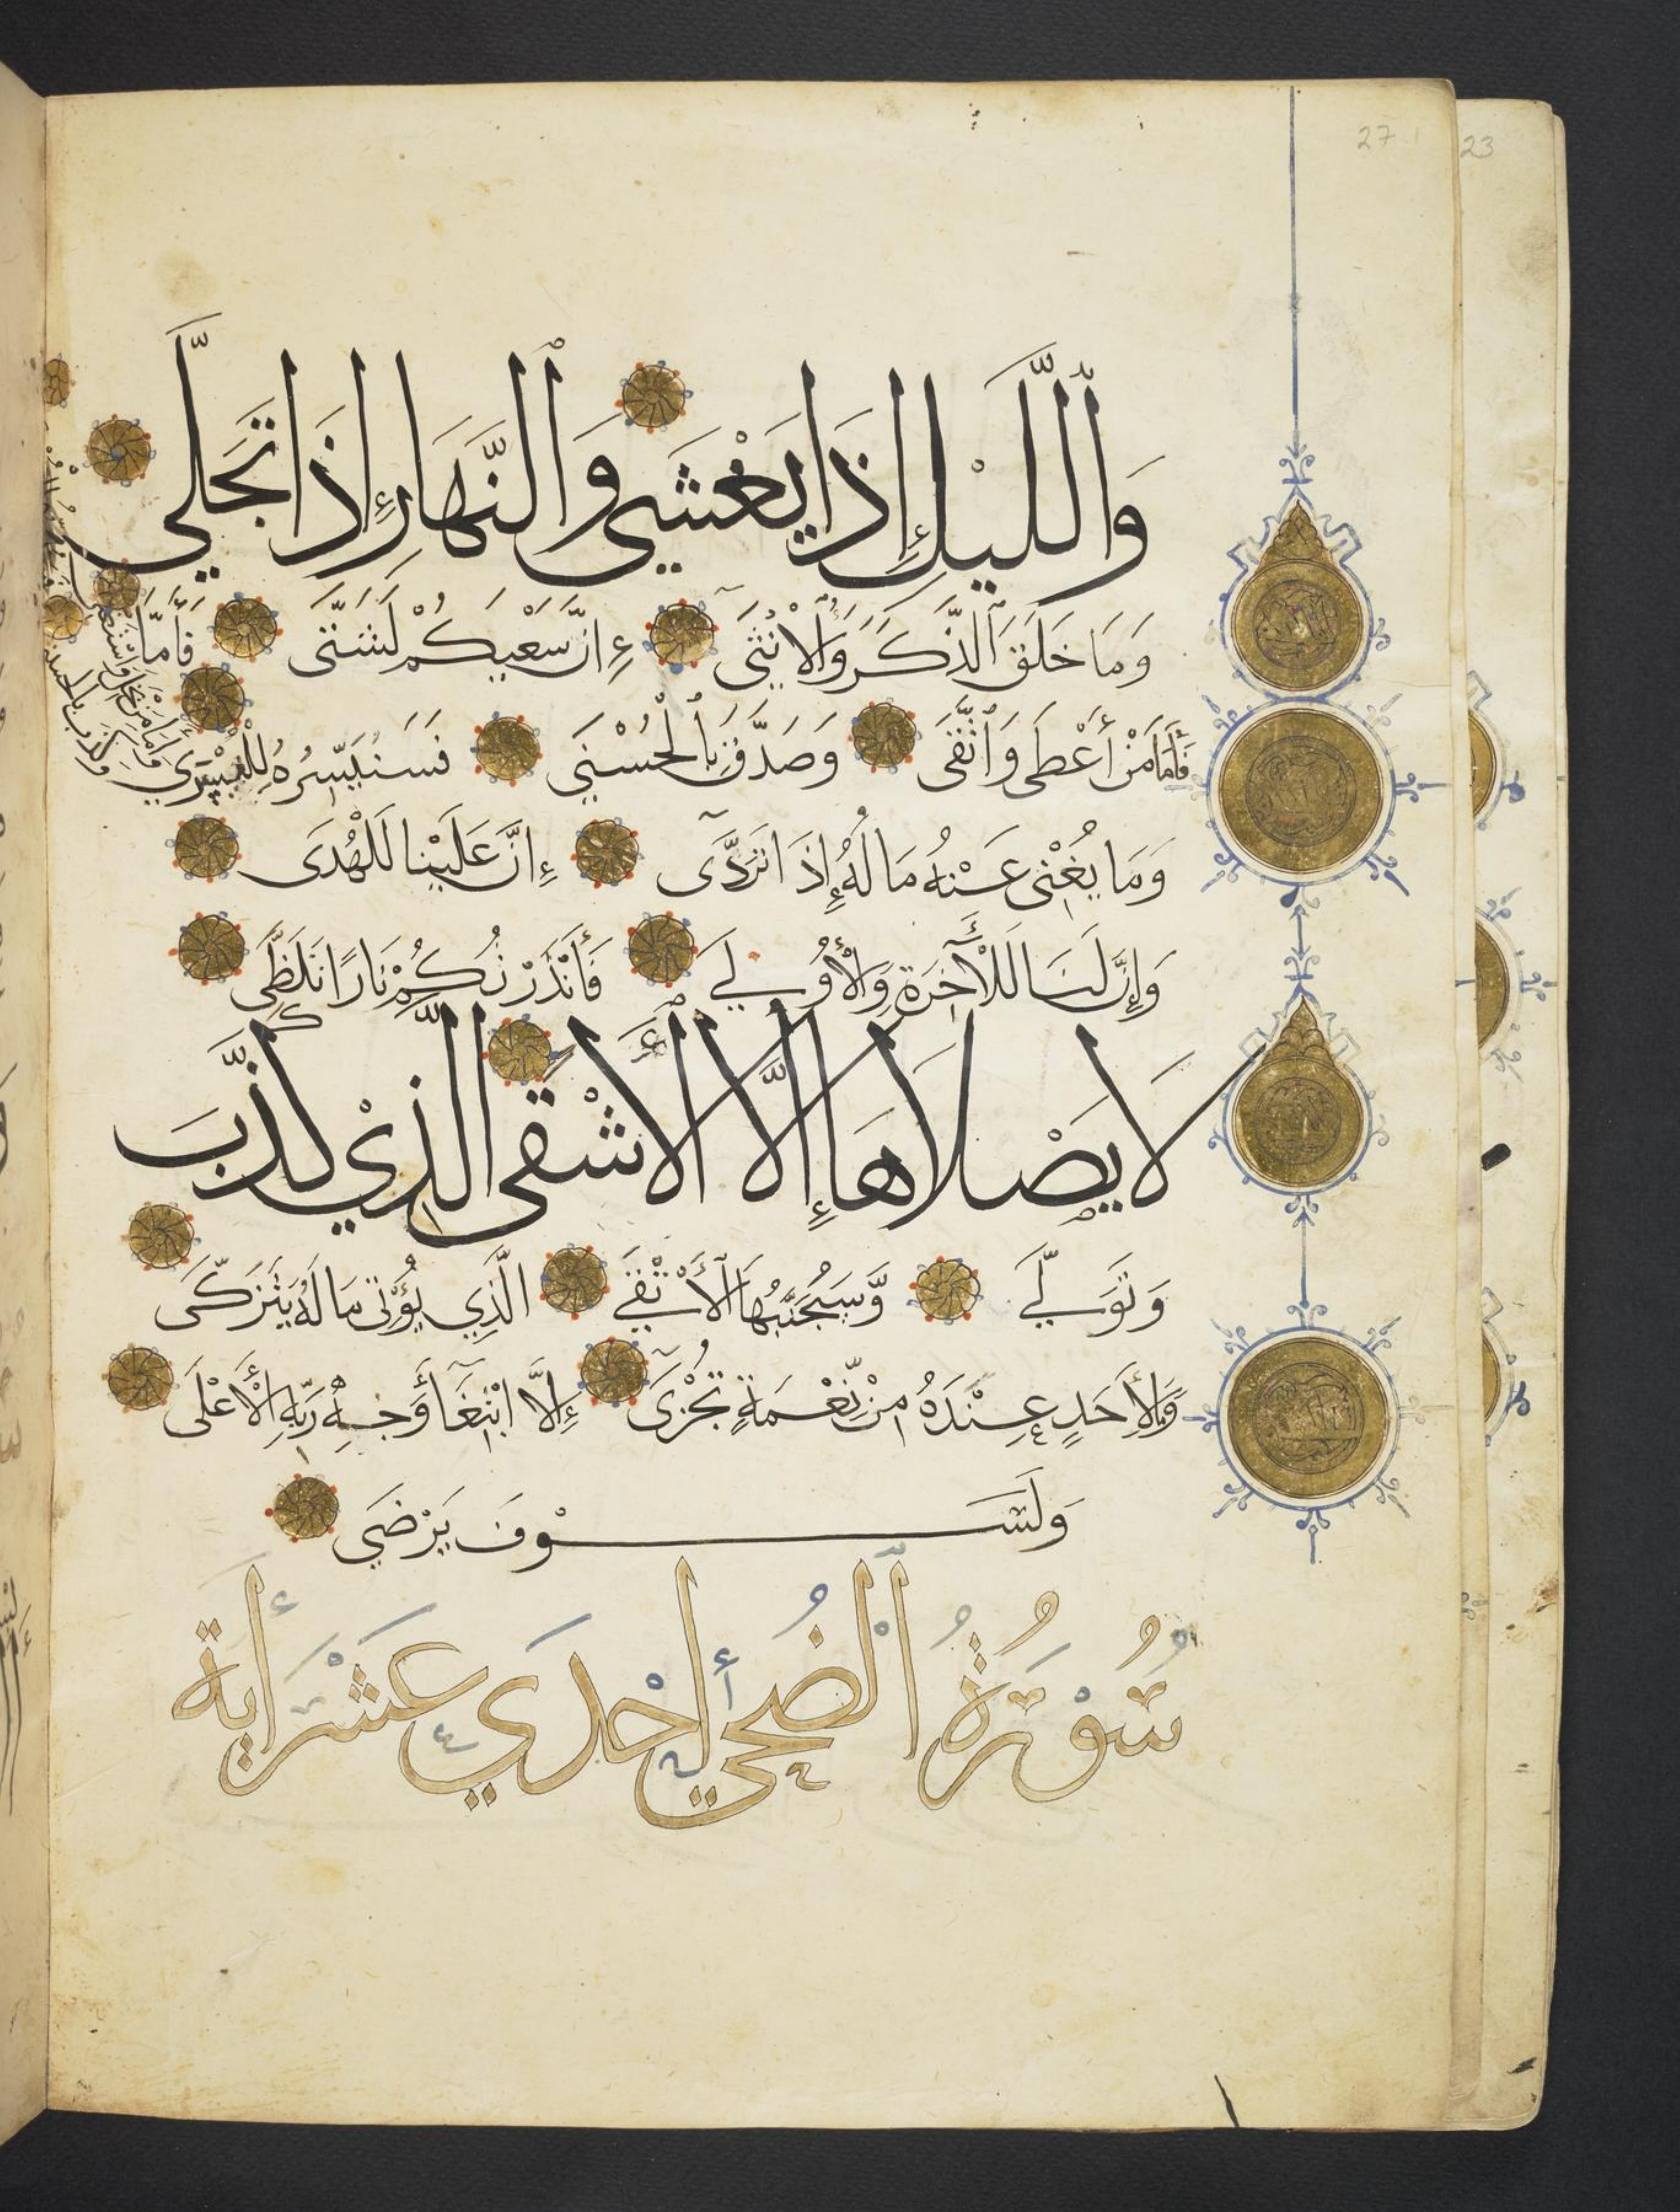 وَٱللَّيْلِ إِذَا يَغْشَىٰ وَٱلنَّهَارِ إِذَا تَجَلَّىٰ
وَمَا خَلَقَ ٱلذَّكَرَ وَٱلْأُنْثَىٰ إِنَّ سَعْيَكُمْ لَشَتَّىٰ فَأَمَّا
فَأَمَّا مَنْ أَعْطَى وَٱتَّقَى وَصَدَّقَ بِٱلْحُسْنَىٰ فَسَنُيَسِّرُهُ لِلْيُسْرَىٰ
وَأَمَّا مَنْ بَخِلَ وَاسْتَغْنَى
وَكَذَّبَ بِالْحُسْنَى
وَمَا يُغْنِي عَنْهُ مَالُهُ إِذَا تَرَدَّىٰ إِنَّ عَلَيْنَا لَلْهُدَى
وَإِنَّ لَنَا لَلْآخِرَةَ وَالْأُولَىٰ فَأَنْذَرْتُكُمْ نَارًا تَلَظَّىٰ
لَا يَصْلَاهَا إِلَّا الْأَشْقَى الَّذِي كَذَّبَ
وَتَوَلَّىٰ وَسَيُجَنَّبُهَا ٱلْأَتْقَىٰ الَّذِي يُؤْتِي مَالَهُ يَتَزَكَّى
وَمَا لِأَحَدٍ عِنْدَهُ مِنْ نِّعْمَةٍ تُجْزَىٰ إِلَّا ابْتِغَآءَ وَجْهِ رَبِّهِ الْأَعْلَى
وَلَسَوْفَ يَرْضَىٰ
سُورَةُ ٱلضُّحَىٰ إِحْدَىٰ عَشْرَ أٰيَة
27
23